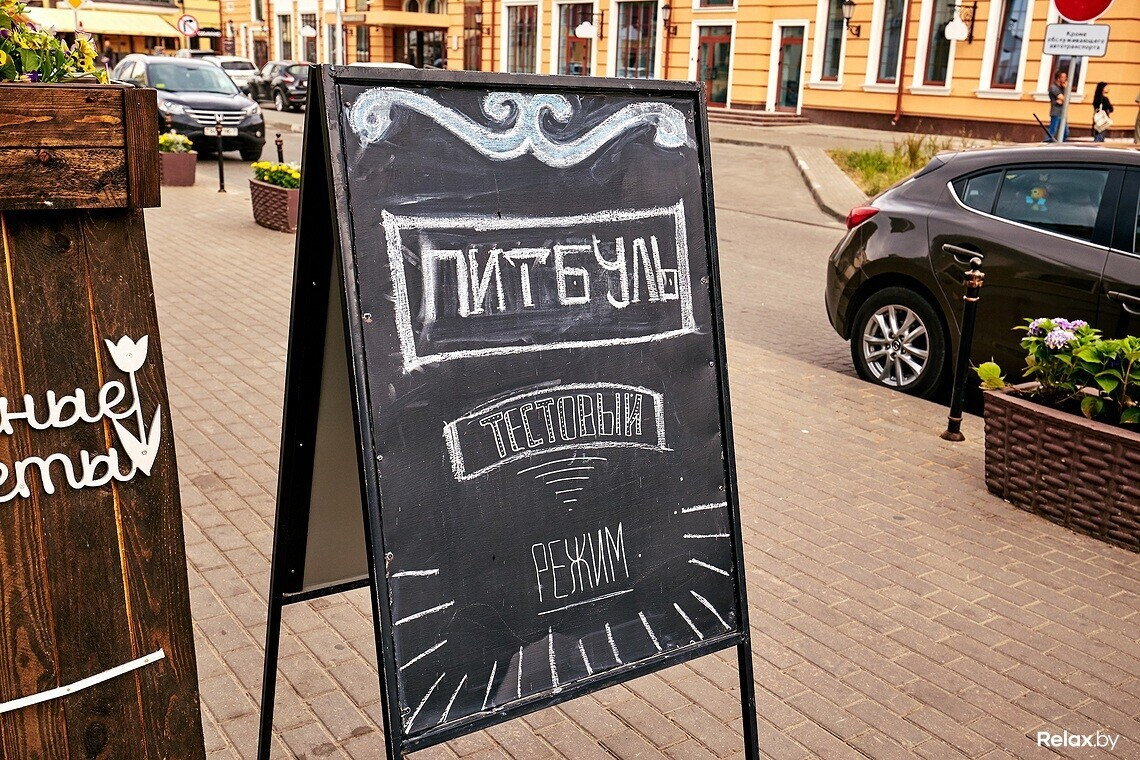 Кроме
обслуживающего
автотранспорта
ПИТБУЛЬ
ТЕСТОВЫЙ
РЕЖИМ
ные
еты
Relax.by